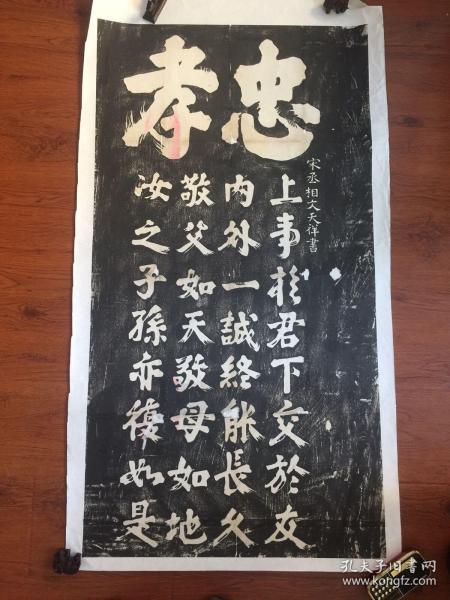 忠孝
宋丞相文天祥書
上事於君下交於友
内外一誠終能長久
敬父如天敬母如地
汝之子孫亦復如是
孔夫子旧书网
www.kongfz.com